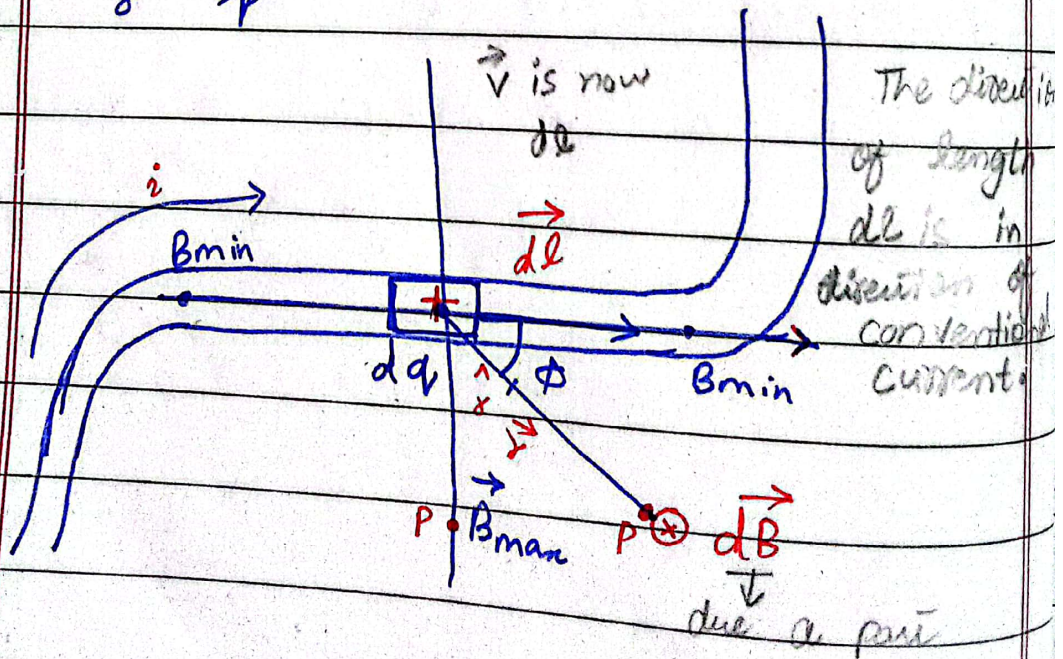 v is now
dl
The direction
of length
dl is in
direction of
conventional
current.
i
Bmin
dl
+
dq
r
ϕ
r
Bmin
P
Bmax
P
dB
due a part